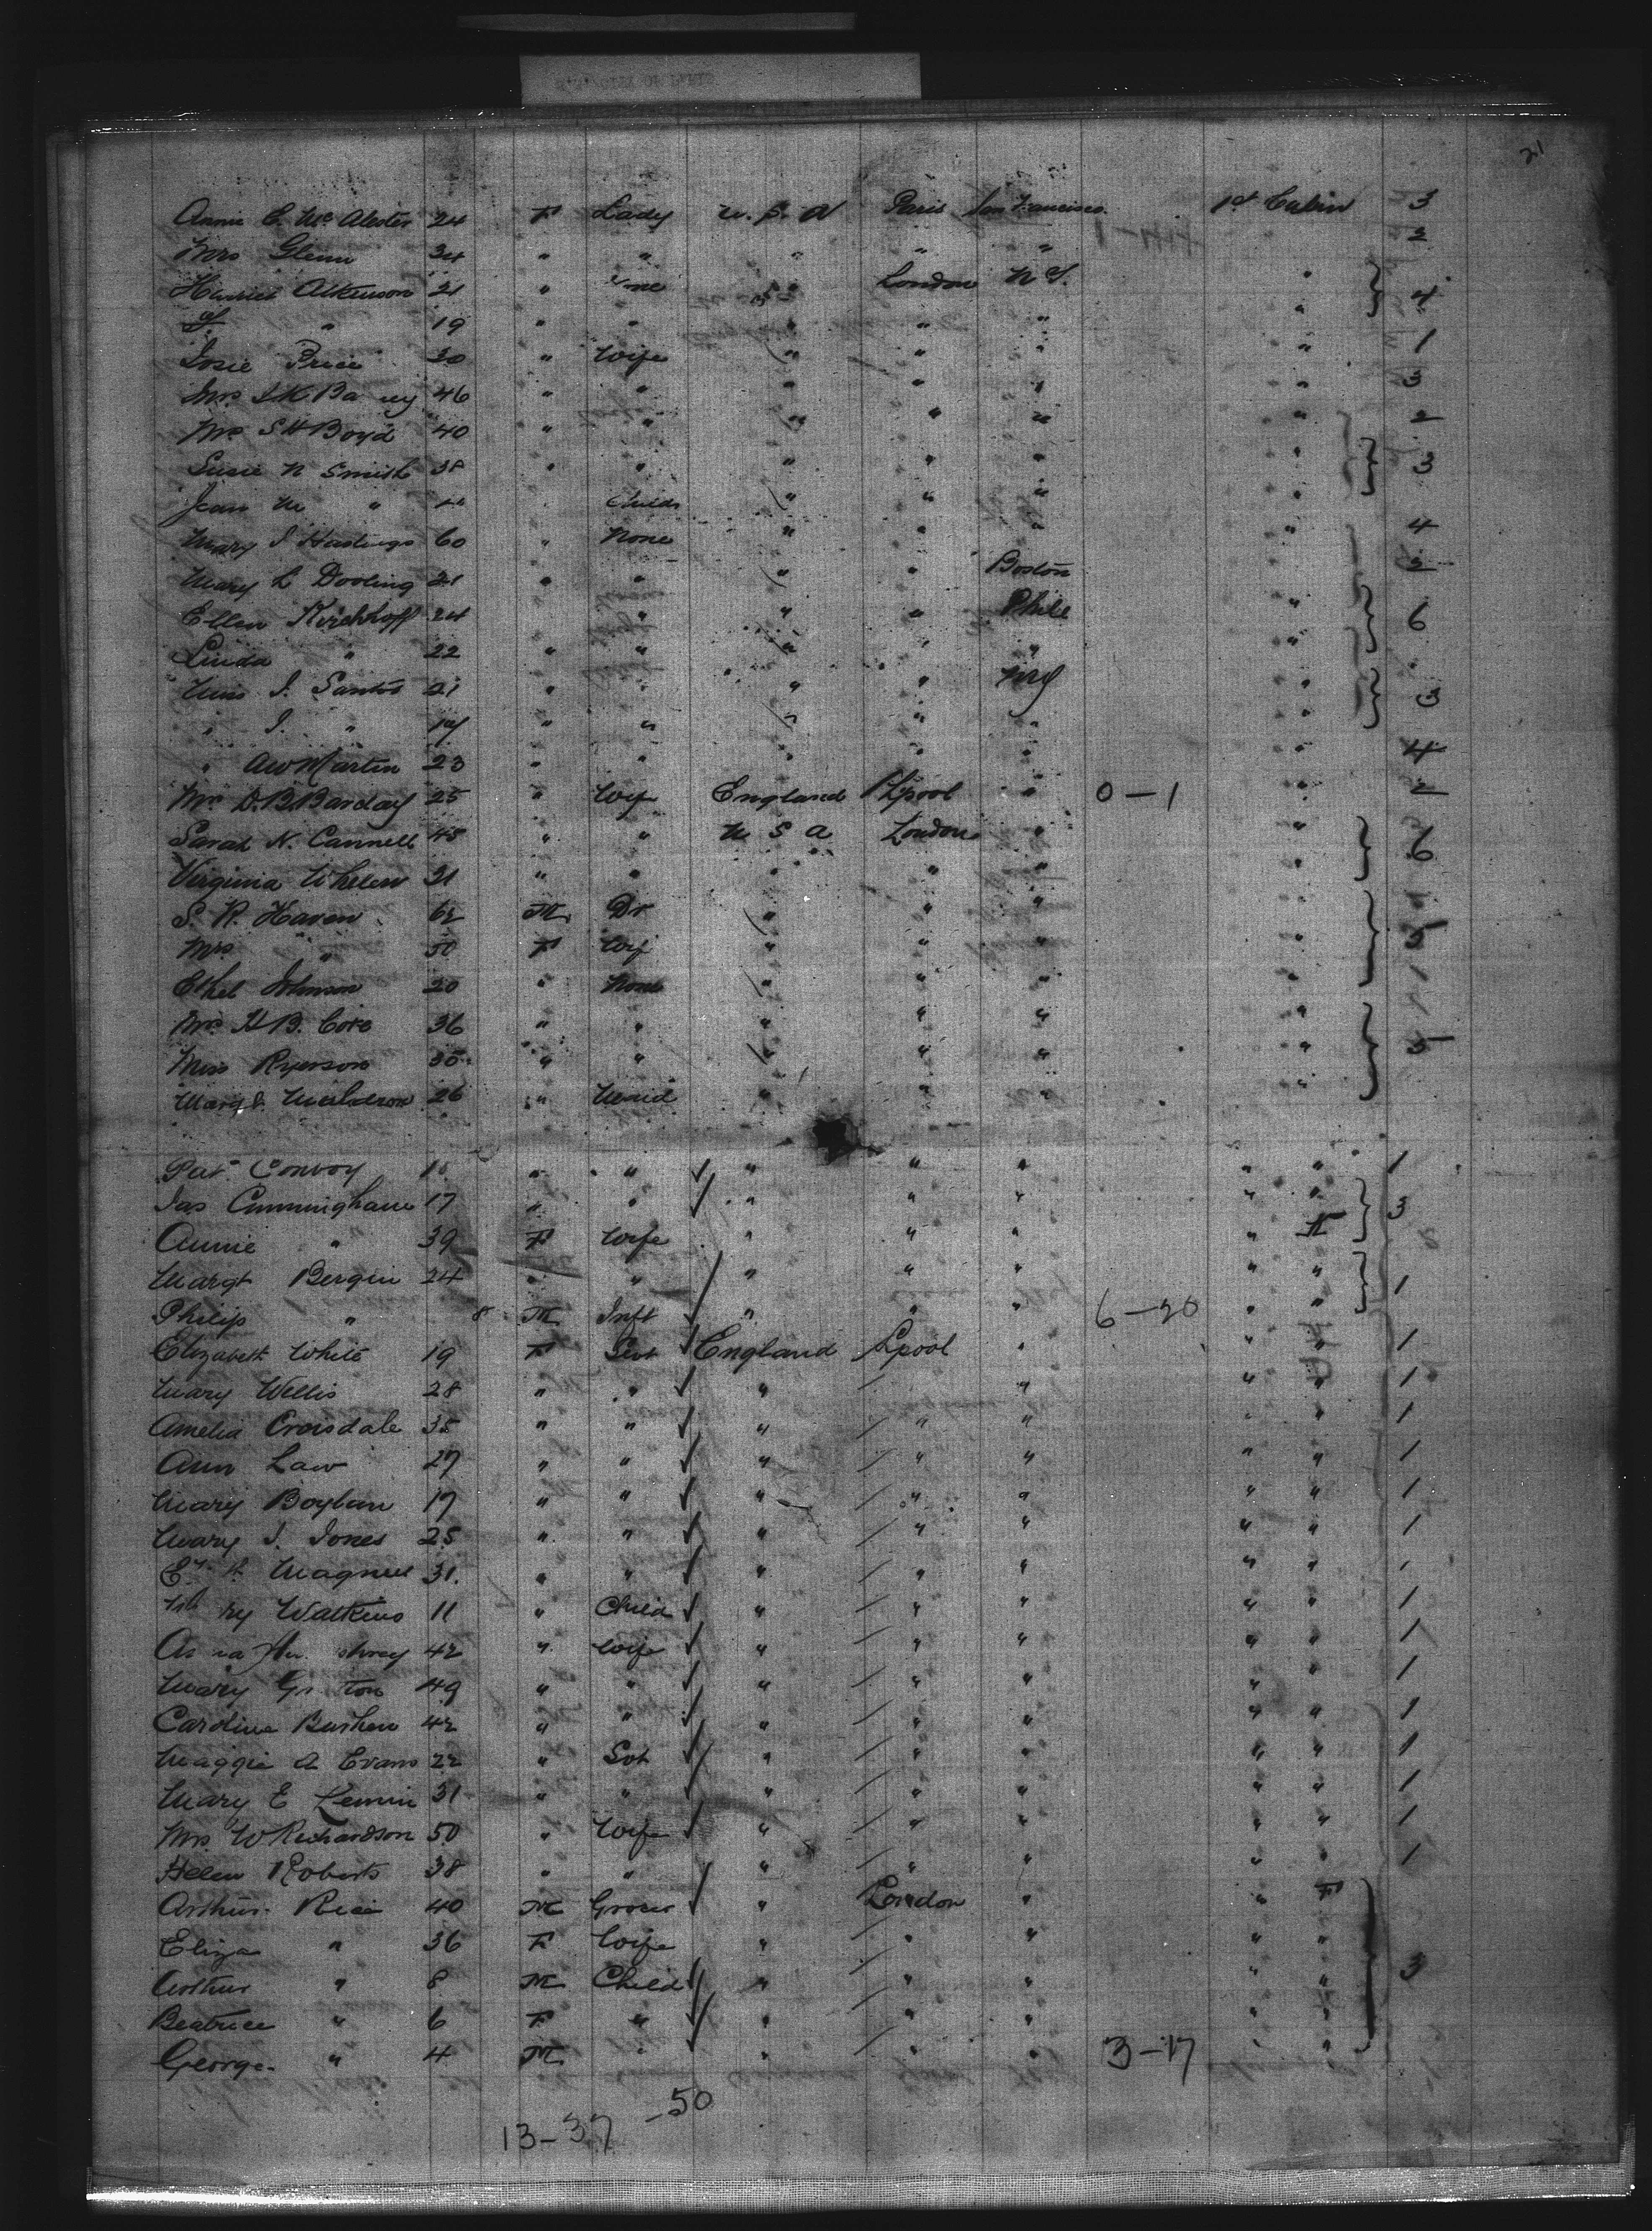 CITY OF PARIS
21
Annie C. McAlester 24 F Lady U.S.A Paris San Francisco 1st Cabin 3
Mrs Glenn 34 " " " " " 2
Harriet Atkinson 21 " None " London N.Y. " 4
" 19 " " " " " "
Josie Price 30 " Wife " " " " 1
Mrs 46 " " " " " " 3
Mrs S H Boyd 40 " " " " " " 2
Susie N Smith 38 " " " " " " 3
Jean M " Child " " " "
Mary J Hastings 60 " None " " " " 4
Mary L Dooling 21 " " " " Boston
Ellen Kirchhoff 24 " " " Phila " 6
Linda " 22 " " " " " "
Miss J. Santos 21 " " " " NY " 3
" J. " " " " " " "
" A W Martin 23 " " " " " " 4
Mrs D.B. Barclay 25 " Wife England L'pool " 0-1 " 2
Sarah N. Cannell 45 " " U S A London " " 6
Virginia Whelen 31 " " " " " "
S. R. Haven 62 M Dr " " "
Mrs " 50 F Wife " " " " 5
Ethel Johnson 20 " None " " " "
Mrs H B. Core 36 " " " " " "
Miss Ryerson 35 " " " " " " 5
Margt. 26 " Maid " " " "
Pat. Convoy " " " " " " " 1
Jas Cunningham 17 " " " " " " " 3
Annie " 39 F Wife " " " "
Margt Bergin 24 " " " " " " " 1
Philip " 8 M Inft " " " 6-20 " "
Elizabeth White 19 F Svt England L'pool " " " 1
Mary Willis 28 " " " " " " 1
Amelia Croisdale 35 " " " " " " " 1
Ann Law 27 " " " " " " " 1
Mary Boylan 17 " " " " " " " 1
Mary J. Jones 25 " " " " " " " 1
Magnus 31 " " " " " " "
Watkins 11 " Child " " " " " 1
42 " Wife " " " " " 1
Mary 49 " " " " " " 1
Caroline Bushen 42 " " " " " " " 1
Maggie A Evans 22 " Svt " " " " " 1
Mary E 31 " " " " " " " 1
Mrs W Richardson 50 " Wife " " " " " 1
Helen Roberts 38 " " " " " " " 1
Arthur Rice 40 M Grocer " London " " F
Eliza " 36 F Wife " " " " "
Arthur " 8 M Child " " " " " 3
Beatrice " 6 F " " " " " "
George " 4 M " " " " 3-17 "
13-37 -50